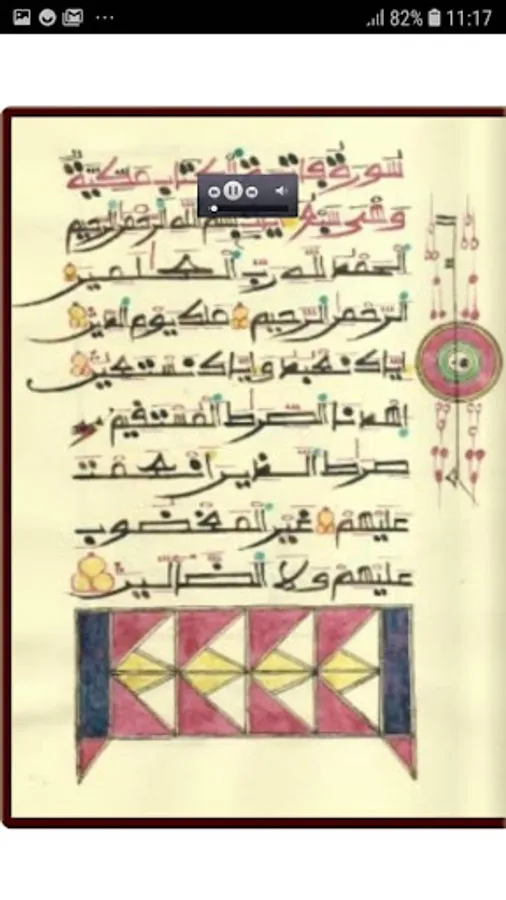 82% 11:17
سورة الكتاب مكية
وهي سبع بسم الله الرحمن الرحيم
الحمد لله رب العلمين
الرحمن الرحيم ملك يوم الدين
إياك نعبد وإياك نستعين
اهدنا الصرط المستقيم
صرط الذين انعمت
عليهم غير المغضوب
عليهم ولا الضالين